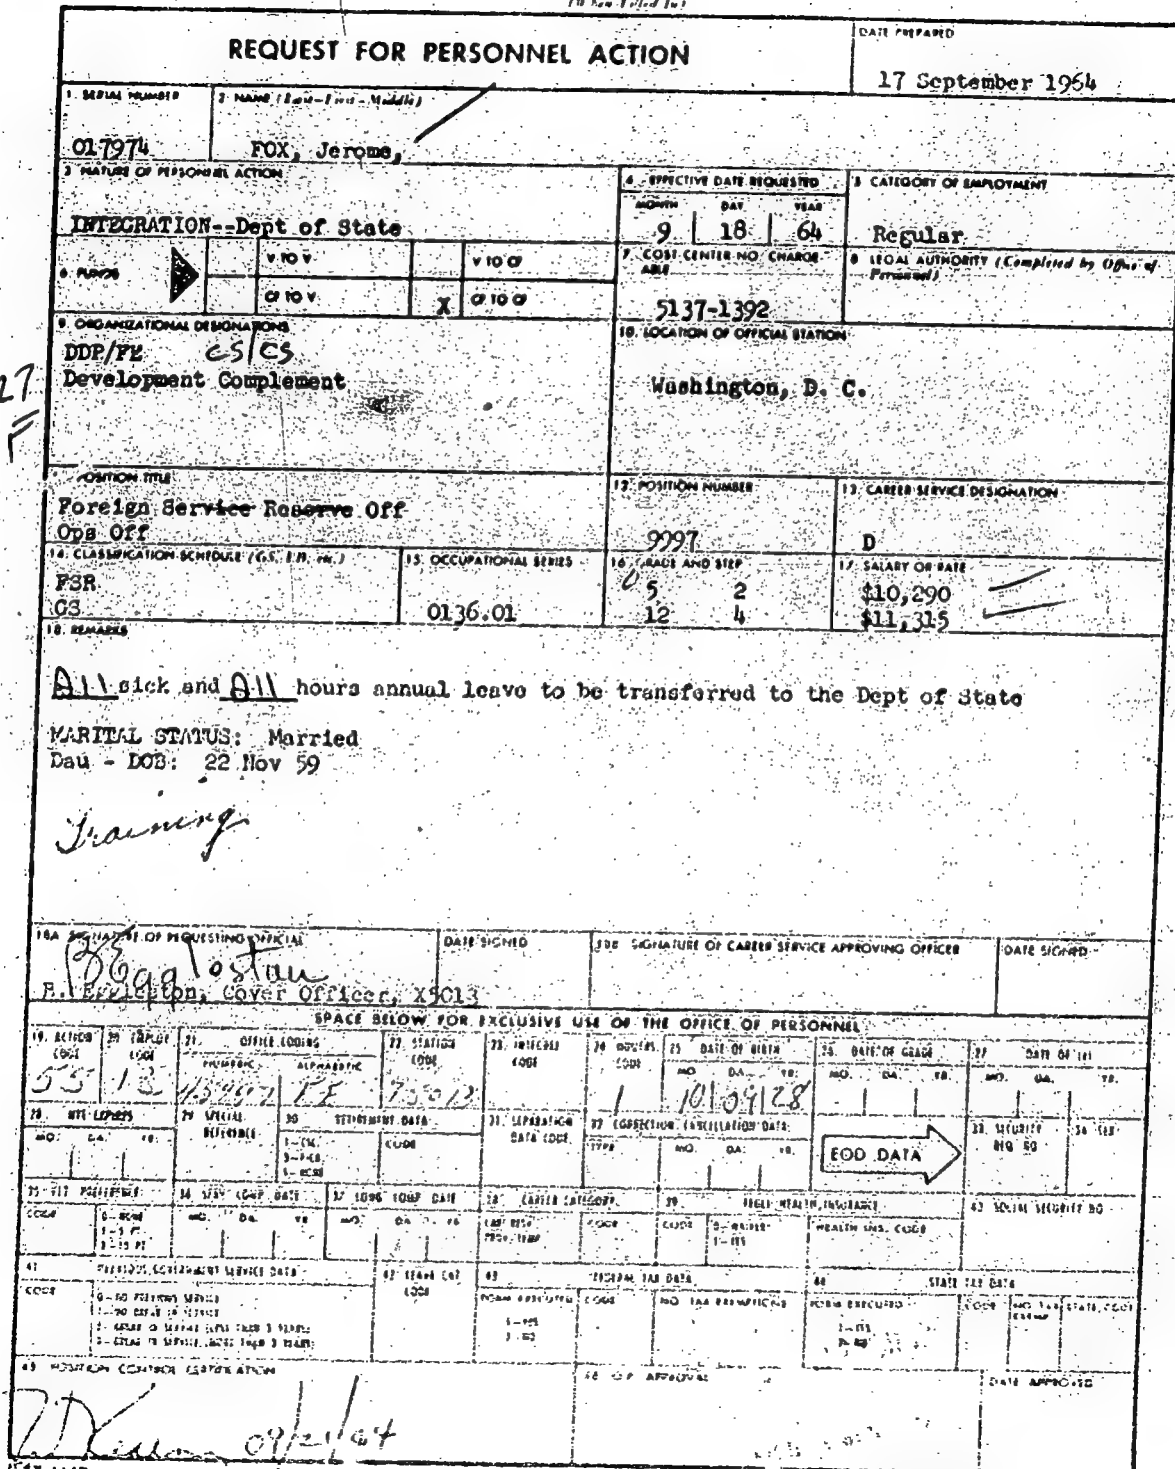 REQUEST FOR PERSONNEL ACTION
DATE PREPARED
17 September 1964
1. SERIAL NUMBER
2. NAME (Last-First-Middle)
017974
FOX, Jerome,
3. NATURE OF PERSONNEL ACTION
4. EFFECTIVE DATE REQUESTED
5. CATEGORY OF EMPLOYMENT
MONTH DAY YEAR
INTEGRATION--Dept of State
9 18 64
Regular
6. FUNDS
V TO V
V TO CF
CF TO V
X
CF TO CF
7. COST CENTER NO. CHARGE-
ABLE
5137-1392
8. LEGAL AUTHORITY (Completed by Office of
Personnel)
9. ORGANIZATIONAL DESIGNATIONS
DDP/FE CS/CS
Development Complement
27
F
10. LOCATION OF OFFICIAL STATION
Washington, D. C.
POSITION TITLE
Foreign Service Reserve Off
Ops Off
12. POSITION NUMBER
9997
13. CAREER SERVICE DESIGNATION
D
14. CLASSIFICATION SCHEDULE (GS, LB, etc.)
FSR
GS
15. OCCUPATIONAL SERIES
0136.01
16. GRADE AND STEP
5 2
12 4
17. SALARY OR RATE
$10,290
$11,315
18. REMARKS
All sick and All hours annual leave to be transferred to the Dept of State
MARITAL STATUS: Married
Dau - DOB: 22 Nov 59
Training
18A. SIGNATURE OF REQUESTING OFFICIAL
DATE SIGNED
18B. SIGNATURE OF CAREER SERVICE APPROVING OFFICER
DATE SIGNED
B. Eggleston, Cover Officer, X5013
SPACE BELOW FOR EXCLUSIVE USE OF THE OFFICE OF PERSONNEL
19. ACTION
CODE
20. EMPLOY
CODE
21. OFFICE CODING
NUMERIC
ALPHABETIC
22. STATION
CODE
23. INTEGREE
CODE
24. HDQTRS.
CODE
25. DATE OF BIRTH
MO. DA. YR.
26. DATE OF GRADE
MO. DA. YR.
27. DATE OF LEI
MO. DA. YR.
55
FE
75013
1
10 09 28
28. NTE EXPIRES
MO. DA. YR.
29. SPECIAL
REFERENCE
30. RETIREMENT DATA
CODE
31. SEPARATION
DATA CODE
32. CORRECTION/CANCELLATION DATA
TYPE
MO. DA. YR.
EOD DATA
33. SECURITY
REQ. NO
34. SEX
35. VET. PREFERENCE
CODE
0-NONE
1-5 PT.
2-10 PT.
36. SERV. COMP. DATE
MO. DA. YR.
37. LONG. COMP. DATE
MO. DA. YR.
38. CAREER CATEGORY
CODE
39. FEGLI/HEALTH INSURANCE
CODE
0-WAIVER
1-YES
HEALTH INS. CODE
40. SOCIAL SECURITY NO
41. PREVIOUS GOVERNMENT SERVICE DATA
CODE
0-NO PREVIOUS SERVICE
1-NO BREAK IN SERVICE
2-BREAK IN SERVICE (LESS THAN 3 YEARS)
3-BREAK IN SERVICE (MORE THAN 3 YEARS)
42. LEAVE CAT.
CODE
43. FEDERAL TAX DATA
FORM EXECUTED
1-YES
2-NO
CODE
NO. TAX EXEMPTIONS
44. STATE TAX DATA
FORM EXECUTED
1-YES
2-NO
CODE
NO. TAX
EXEMP
STATE CODE
45. POSITION CONTROL CERTIFICATION
46. O.P. APPROVAL
DATE APPROVED
09/21/64